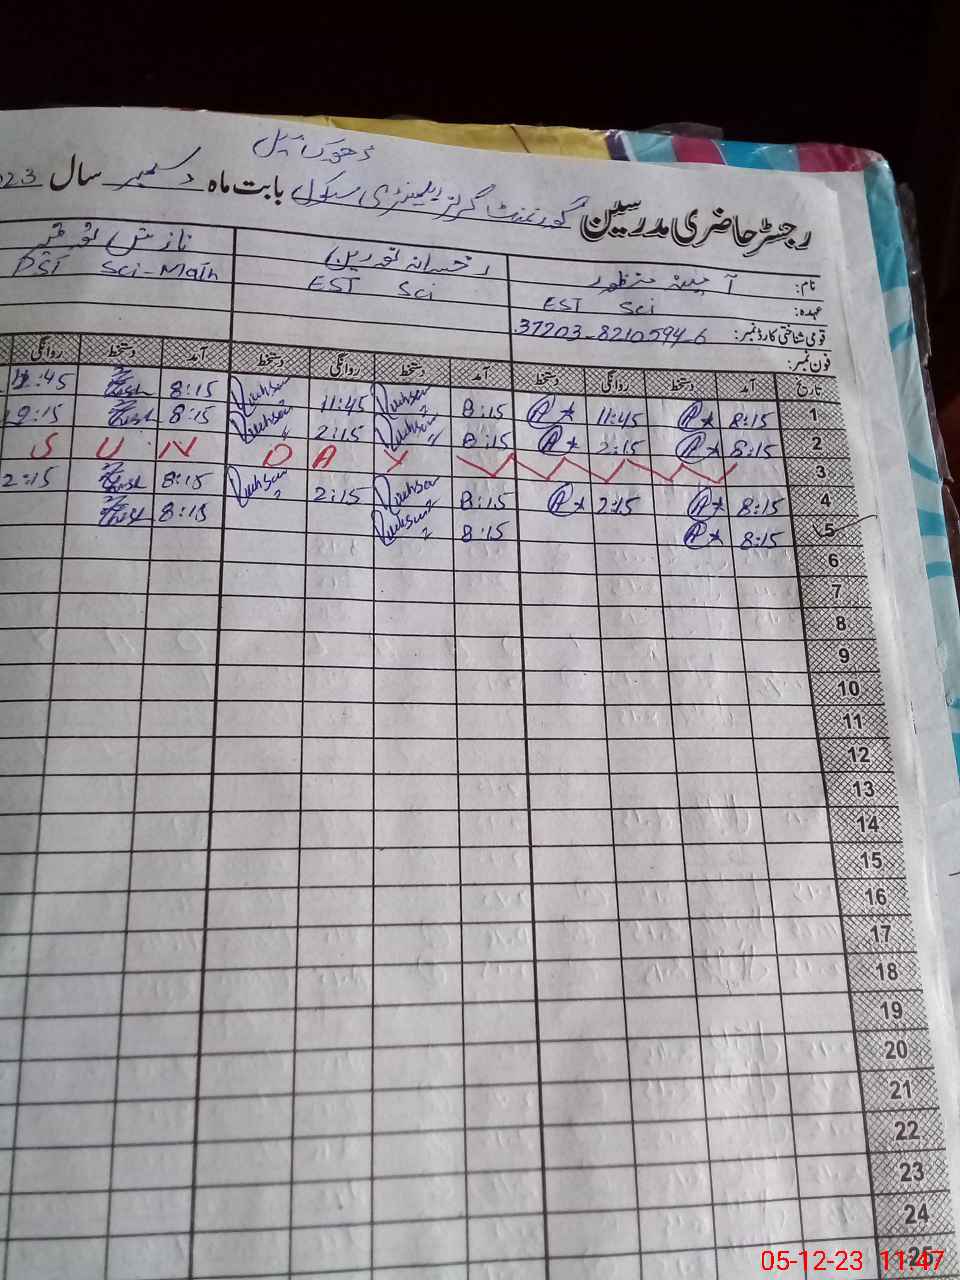 ڈھوک اپل
رجسٹر حاضری مدرسین گورنمنٹ گرلز ایلیمنٹری سکول بابت ماہ دسمبر سال 023
نام: آمینہ منظور رخسانہ نازش
عہدہ: EST Sci EST Sci PST Sci-Math
قومی شناختی کارڈ نمبر: 37203-8210594-6
فون نمبر:
تاریخ آمد دستخط روانگی دستخط آمد دستخط روانگی دستخط آمد دستخط روانگی
1 8:15 11:45 8:15 11:45 8:15 11:45
2 8:15 2:15 8:15 2:15 8:15 2:15
3 S U N D A Y
4 8:15 2:15 8:15 2:15 8:15 2:15
5 8:15 8:15 8:15
6
7
8
9
10
11
12
13
14
15
16
17
18
19
20
21
22
23
24
25
05-12-23 11:47